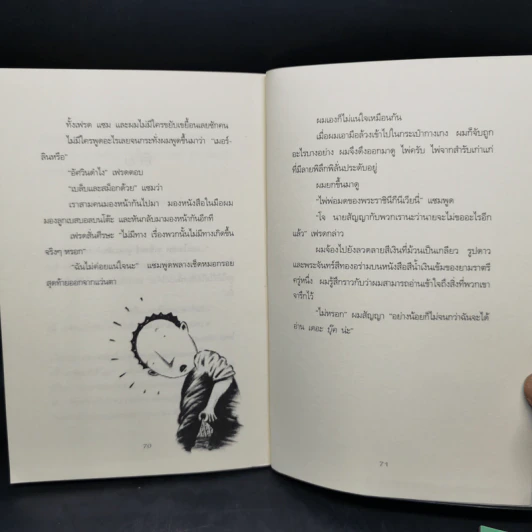 ทั้งเฟรด แซม และผมไม่มีใครขยับเขยื้อนเลยซักคน
ไม่มีใครพูดอะไรเลยจนกระทั่งผมพูดขึ้นมาว่า "เมอร์-
ลินหรือ"
"อัศวินดำไง" เฟรดตอบ
"เบลิบและสม็อกด้วย" แซมว่า
เราสามคนมองหน้ากันไปมา มองหนังสือในมือผม
มองลูกเบสบอลบนโต๊ะ และหันกลับมามองหน้ากันอีกที
เฟรดสั่นศีรษะ "ไม่มีทาง เรื่องพวกนั้นไม่มีทางเกิดขึ้น
จริงๆ หรอก"
"ฉันไม่ค่อยแน่ใจนะ" แซมพูดพลางเช็ดหมอกรอย
สุดท้ายออกจากแว่นตา
70
ผมเองก็ไม่แน่ใจเหมือนกัน
เมื่อผมเอามือล้วงเข้าไปในกระเป๋ากางเกง ผมก็จับถูก
อะไรบางอย่าง ผมจึงดึงออกมาดู ไพ่ครับ ไพ่จากสำรับเก่าแก่
ที่มีลายพิลึกพิลั่นประดับอยู่
ผมยกขึ้นมาดู
"ไพ่พ่อมดของพระราชินีกวินีเวียร์นี่" แซมพูด
"โจ นายสัญญากับพวกเรานะว่านายจะไม่ขออะไรอีก
แล้ว" เฟรดกล่าว
ผมจ้องไปยังลวดลายสีเงินที่ม้วนเป็นเกลียว รูปดาว
และพระจันทร์สีทองอร่ามบนหนังสือสีน้ำเงินเข้มของยามราตรี
ครู่หนึ่ง ผมรู้สึกราวกับว่าผมสามารถอ่านเข้าใจถึงสิ่งที่พวกเขา
จารึกไว้
"ไม่หรอก" ผมสัญญา "อย่างน้อยก็ไม่จนกว่าฉันจะได้
อ่าน เดอะ บุ๊ค น่ะ"
71